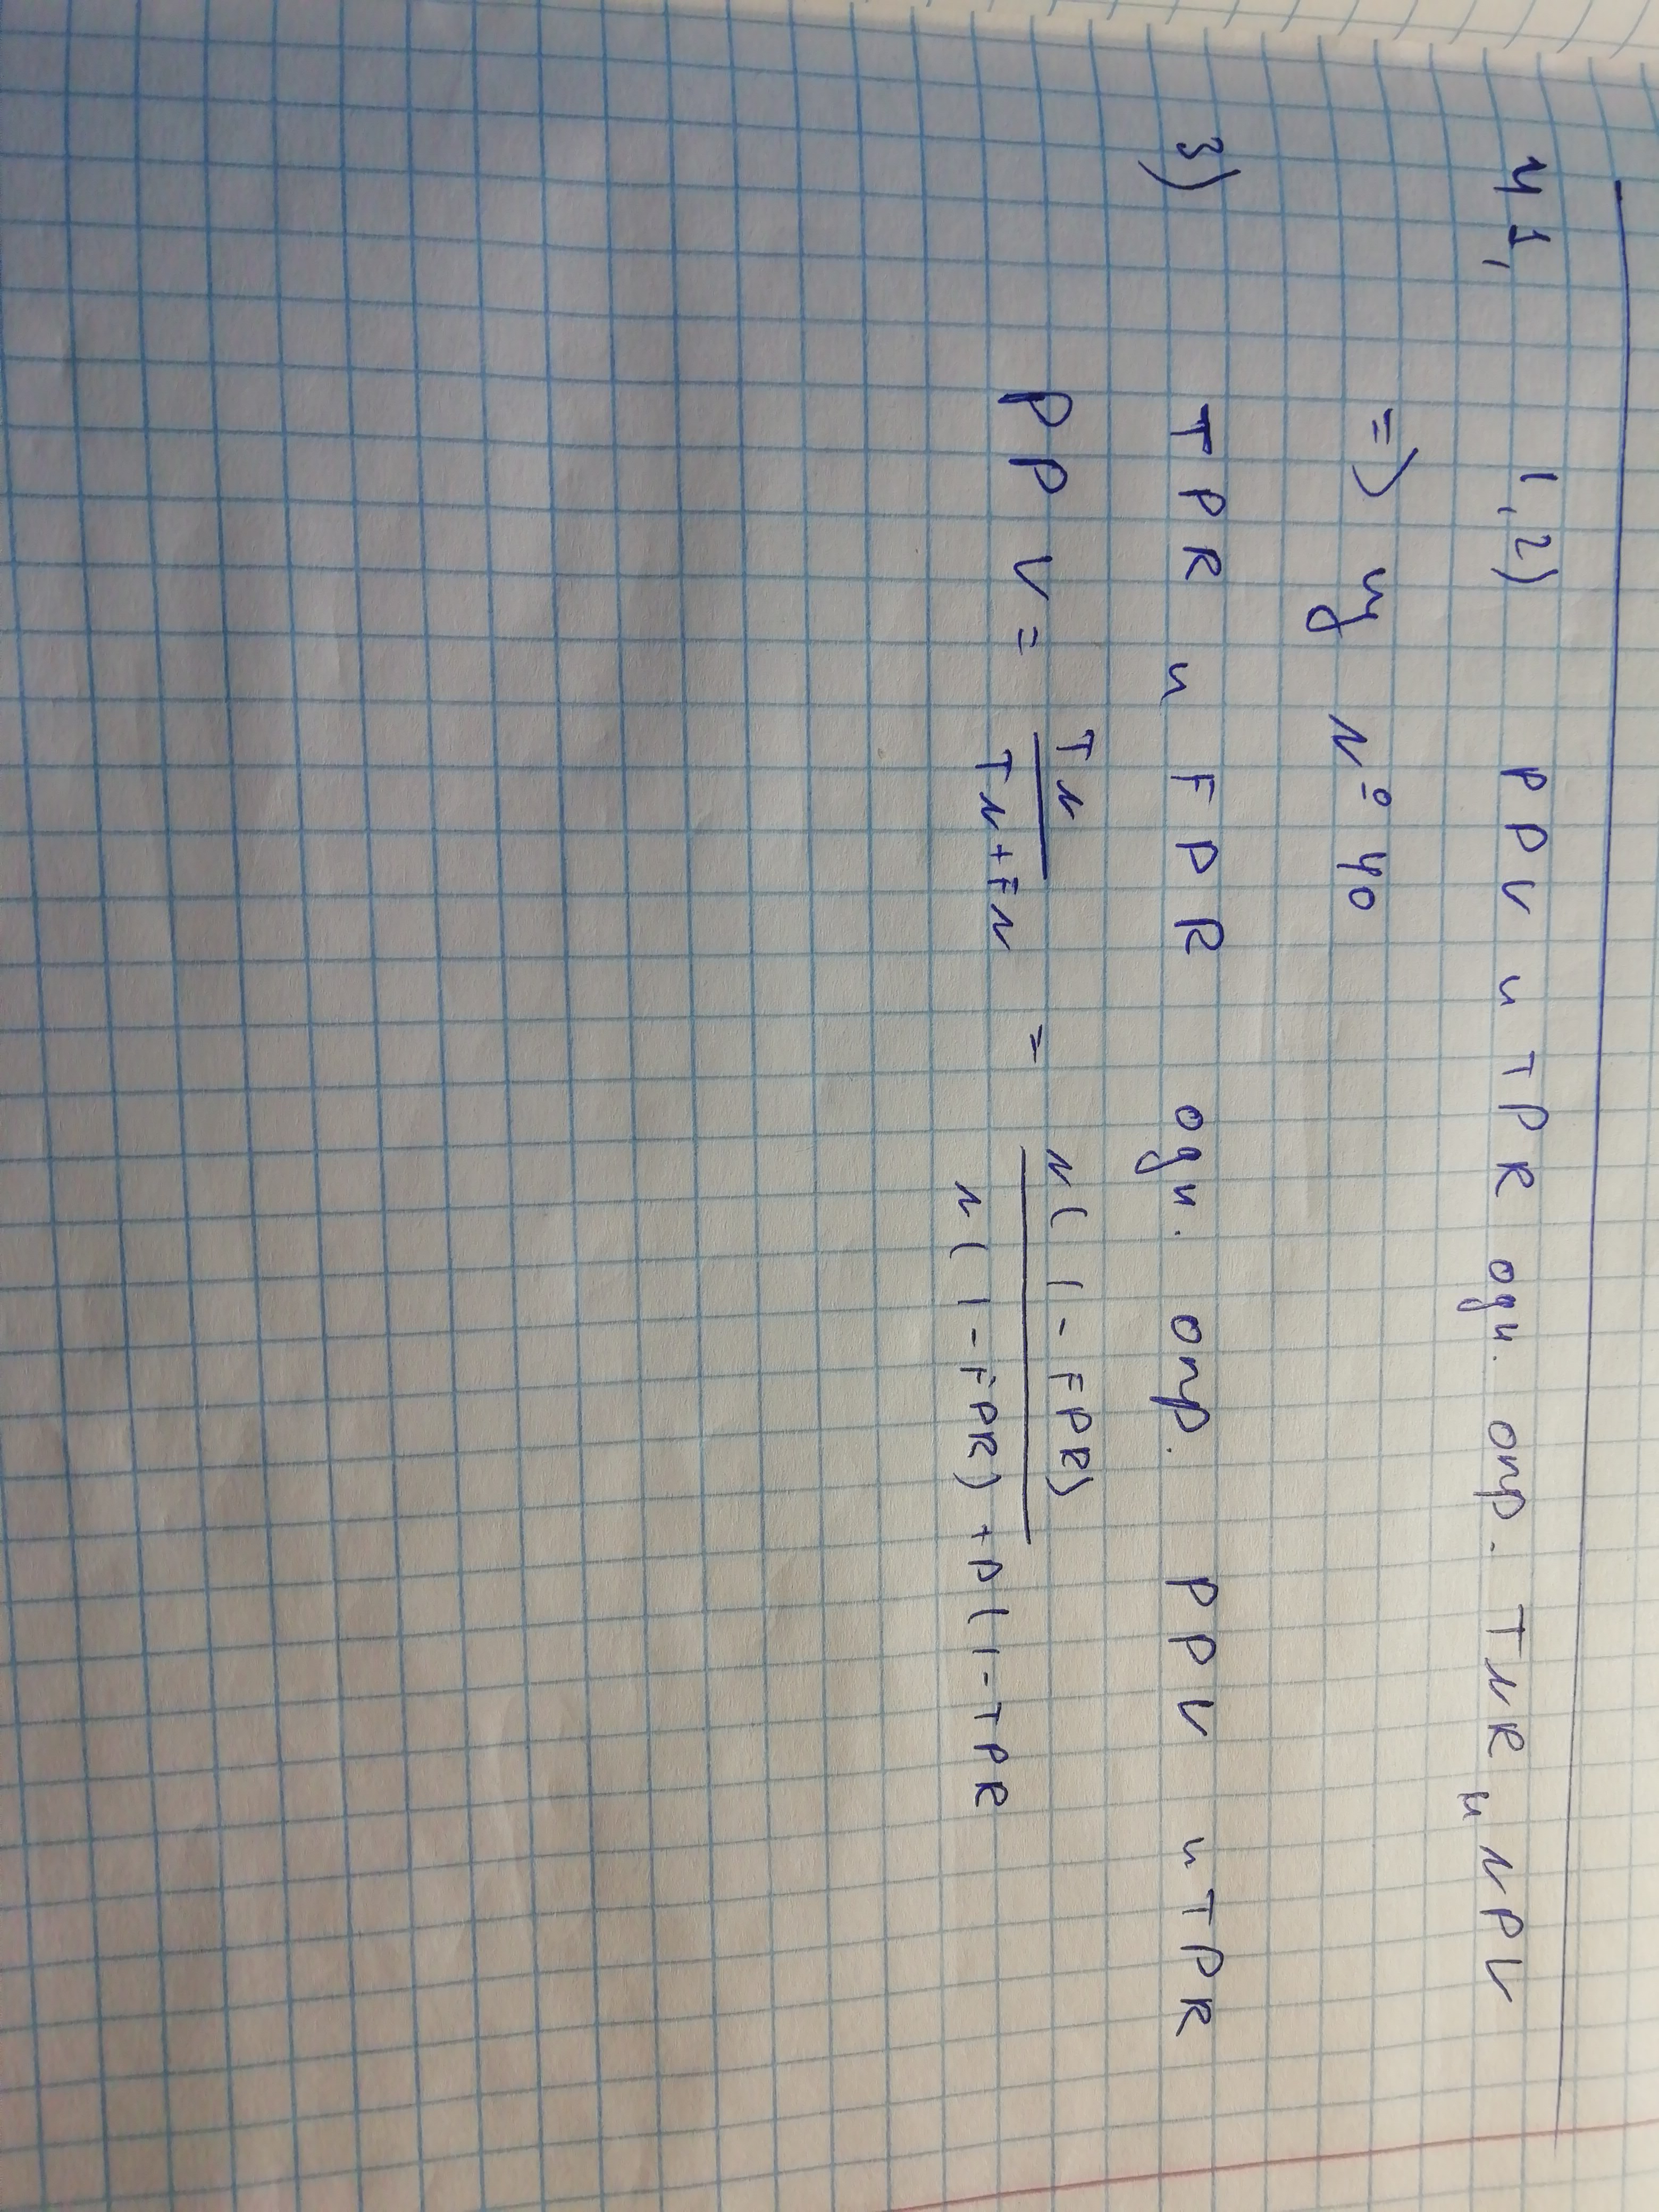 41, 1,2) PPV и TPR одн. опр. TNR и NPV
=> из № 40
3) TPR и FPR одн. опр. PPV и TPR
PPV = TN / TN+FN = N(1-FPR) / N(1-FPR)+P(1-TPR